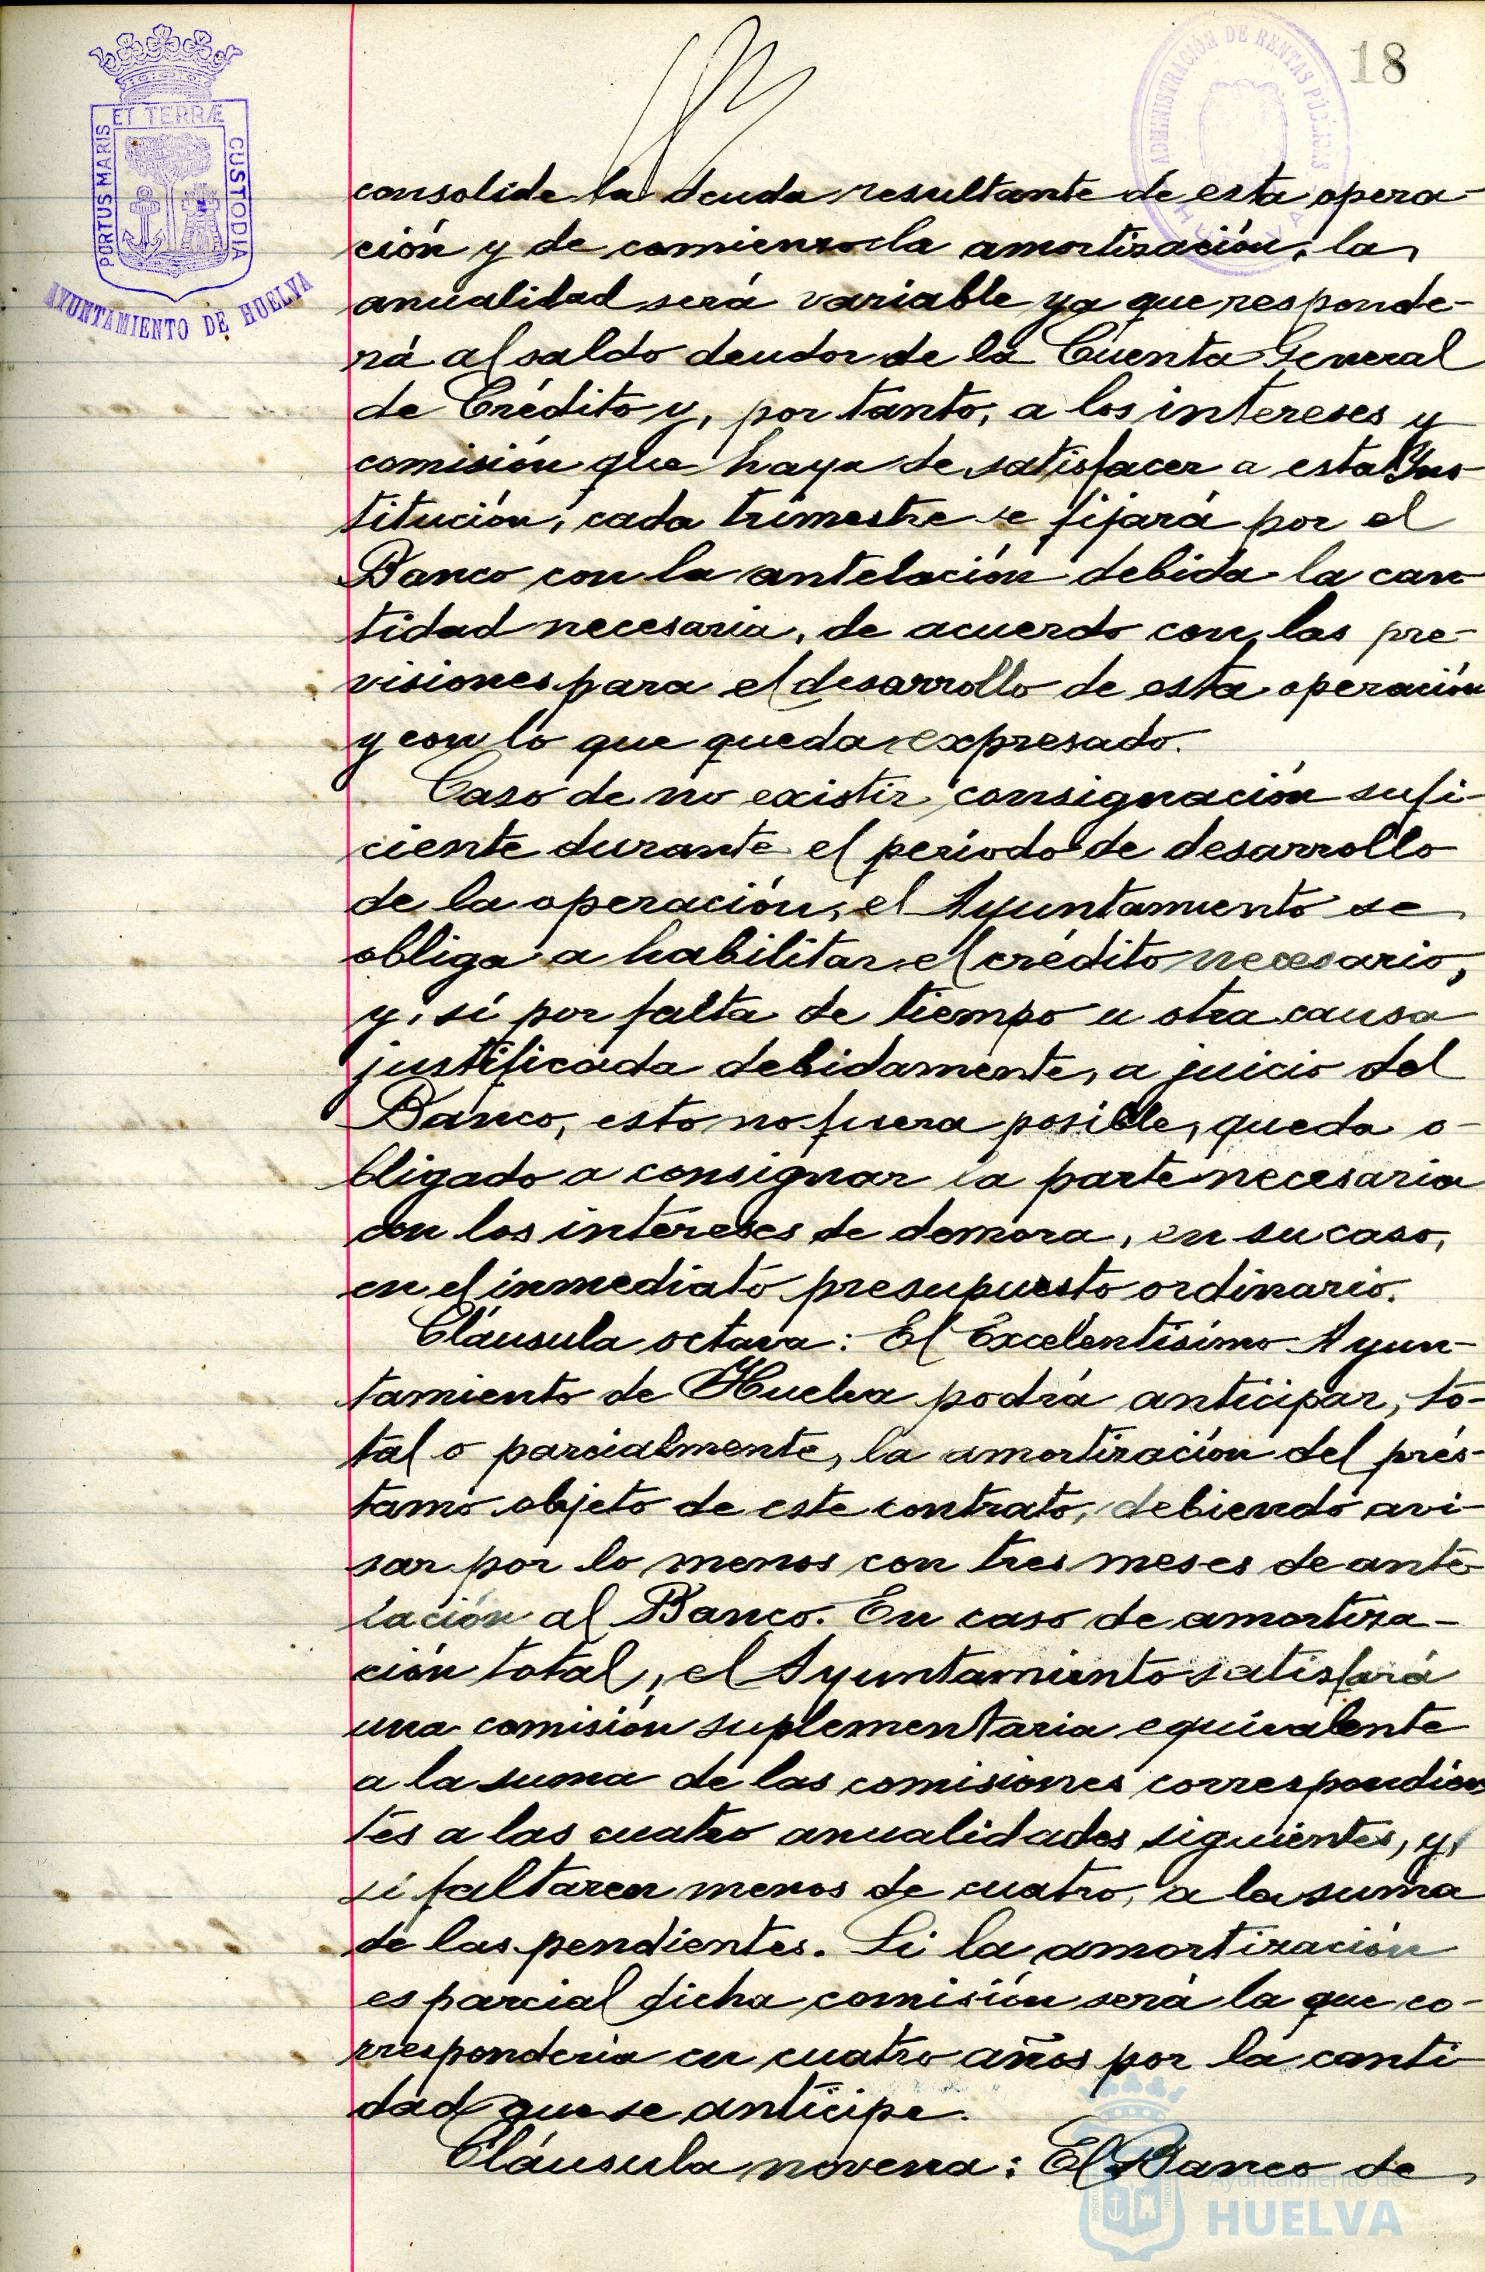 18
ET TERRÆ
PORTUS MARIS
CUSTODIA
AYUNTAMIENTO DE HUELVA
ADMINISTRACIÓN DE RENTAS PÚBLICAS
HUELVA
consolide la deuda resultante de esta opera-
ción y de comienzo la amortización, la
anualidad será variable ya que responde-
rá al saldo deudor de la Cuenta General
de Crédito y, por tanto, a los intereses y
comisión que haya de satisfacer a esta Ins
titución, cada trimestre se fijará por el
Banco con la antelación debida la can
tidad necesaria, de acuerdo con las pre-
visiones para el desarrollo de esta operación
y con lo que queda expresado.
Caso de no existir consignación sufi-
ciente durante el período de desarrollo
de la operación, el Ayuntamiento se
obliga a habilitar el crédito necesario,
y, si por falta de tiempo u otra causa
justificada debidamente, a juicio del
Banco, esto no fuera posible, queda o-
bligado a consignar la parte necesaria
con los intereses de demora, en su caso,
en el inmediato presupuesto ordinario.
Cláusula octava: El Excelentísimo Ayun-
tamiento de Huelva podrá anticipar, to-
tal o parcialmente, la amortización del prés-
tamo objeto de este contrato, debiendo avi-
sar por lo menos con tres meses de ante-
lación al Banco. En caso de amortiza-
ción total, el Ayuntamiento satisfará
una comisión suplementaria equivalente
a la suma de las comisiones correspondien
tes a las cuatro anualidades siguientes, y,
si faltaren menos de cuatro, a la suma
de las pendientes. Si la amortización
es parcial dicha comisión será la que co-
rrespondería en cuatro años por la canti-
dad que se anticipe.
Cláusula novena: El Banco de
Ayuntamiento de
HUELVA